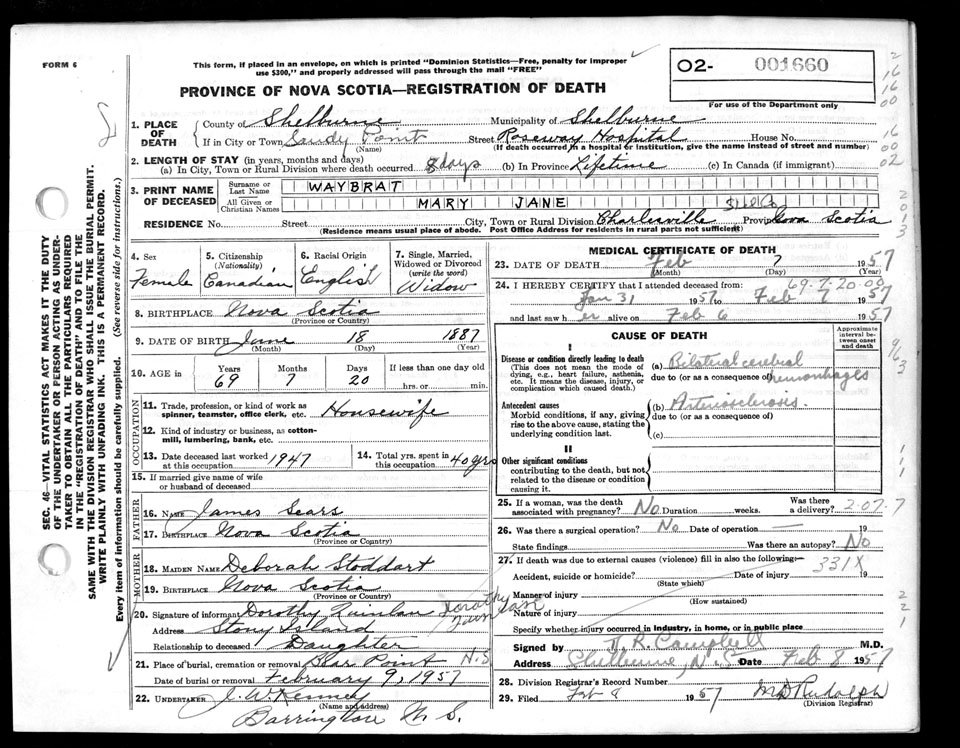 FORM 6
This form, if placed in an envelope, on which is printed "Dominion Statistics—Free, penalty for improper
use $300," and properly addressed will pass through the mail "FREE"
PROVINCE OF NOVA SCOTIA—REGISTRATION OF DEATH
O2- 001660
For use of the Department only
1. PLACE OF DEATH { County of Shelburne Municipality of Shelburne
If in City or Town Sandy Point Street Roseway Hospital House No.
(Name) (If death occurred in a hospital or institution, give the name instead of street and number)
2. LENGTH OF STAY (in years, months and days)
(a) In City, Town or Rural Division where death occurred 8 days (b) In Province Lifetime (c) In Canada (if immigrant)
3. PRINT NAME OF DECEASED { Surname or Last Name WAYBRAT
All Given or Christian Names MARY JANE
Shel Co
RESIDENCE No. Street City, Town or Rural Division Charlesville Province Nova Scotia
(Residence means usual place of abode. Post Office Address for residents in rural parts not sufficient)
4. Sex Female
5. Citizenship (Nationality) Canadian
6. Racial Origin English
7. Single, Married, Widowed or Divorced (write the word) Widow
8. BIRTHPLACE Nova Scotia
(Province or Country)
9. DATE OF BIRTH June 18 1887
(Month) (Day) (Year)
10. AGE in Years Months Days If less than one day old
69 7 20 hrs. or min.
OCCUPATION
11. Trade, profession, or kind of work as spinner, teamster, office clerk, etc. Housewife
12. Kind of industry or business, as cotton-mill, lumbering, bank, etc.
13. Date deceased last worked at this occupation 1947
14. Total yrs. spent in this occupation 40 yrs
15. If married give name of wife or husband of deceased
FATHER
16. NAME James Sears
17. BIRTHPLACE Nova Scotia
(Province or Country)
MOTHER
18. MAIDEN NAME Deborah Stoddart
19. BIRTHPLACE Nova Scotia
(Province or Country)
20. Signature of informant Dorothy Quinlan
Dorothy
Address Stony Island
Relationship to deceased Daughter
21. Place of burial, cremation or removal Bear Point N.S
Date of burial or removal February 9, 1957
22. UNDERTAKER J. W. Kenney
(Name and address)
Barrington N. S.
MEDICAL CERTIFICATE OF DEATH
23. DATE OF DEATH Feb 7 1957
(Month) (Day) (Year)
69-7-20-00
24. I HEREBY CERTIFY that I attended deceased from:
Jan 31 1957 to Feb 7 1957
and last saw h er alive on Feb 6 1957
CAUSE OF DEATH
Approximate interval between onset and death
I
Disease or condition directly leading to death
(This does not mean the mode of dying, e.g., heart failure, asthenia, etc. It means the disease, injury, or complication which caused death.)
(a) Bilateral cerebral
due to (or as a consequence of) hemorrhages
Antecedent causes
Morbid conditions, if any, giving rise to the above cause, stating the underlying condition last.
(b) Arteriosclerosis.
due to (or as a consequence of)
(c)
II
Other significant conditions
contributing to the death, but not related to the disease or condition causing it.
25. If a woman, was the death associated with pregnancy? No Duration weeks. Was there a delivery?
2-07-7
26. Was there a surgical operation? No Date of operation — 19
State findings Was there an autopsy? No
27. If death was due to external causes (violence) fill in also the following:
331X
Accident, suicide or homicide? Date of injury 19
(State which)
Manner of injury
(How sustained)
Nature of injury
Specify whether injury occurred in industry, in home, or in public place
Signed by R. Campbell M.D.
Address Shelburne, N.S Date Feb 8 1957
28. Division Registrar's Record Number
29. Filed Feb 9 1957 Rudolph
(Division Registrar)
SEC. 46—VITAL STATISTIC ACT MAKES IT THE DUTY
OF THE UNDERTAKER OR PERSON ACTING AS UNDER-
TAKER TO OBTAIN ALL THE PARTICULARS REQUIRED
IN THE "REGISTRATION OF DEATH" AND TO FILE THE
SAME WITH THE DIVISION REGISTRAR WHO SHALL ISSUE THE BURIAL PERMIT.
WRITE PLAINLY WITH UNFADING INK. THIS IS A PERMANENT RECORD.
Every item of information should be carefully supplied. (See reverse side for instructions.)